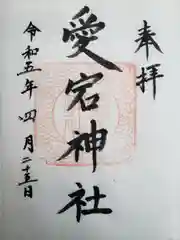 奉拝
愛宕神社
令和五年四月二十五日